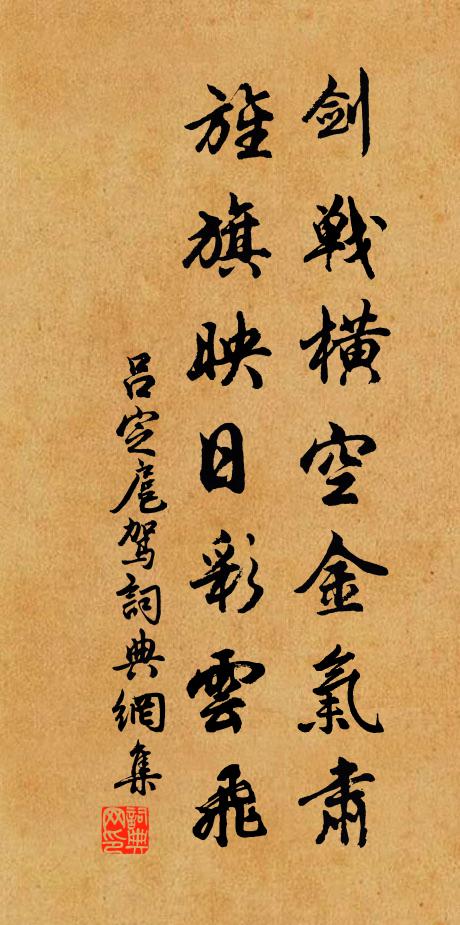 劍戦橫空金氣肅
旌旗映日彩雲飛
吕定扈駕詞典網集
詞典网印